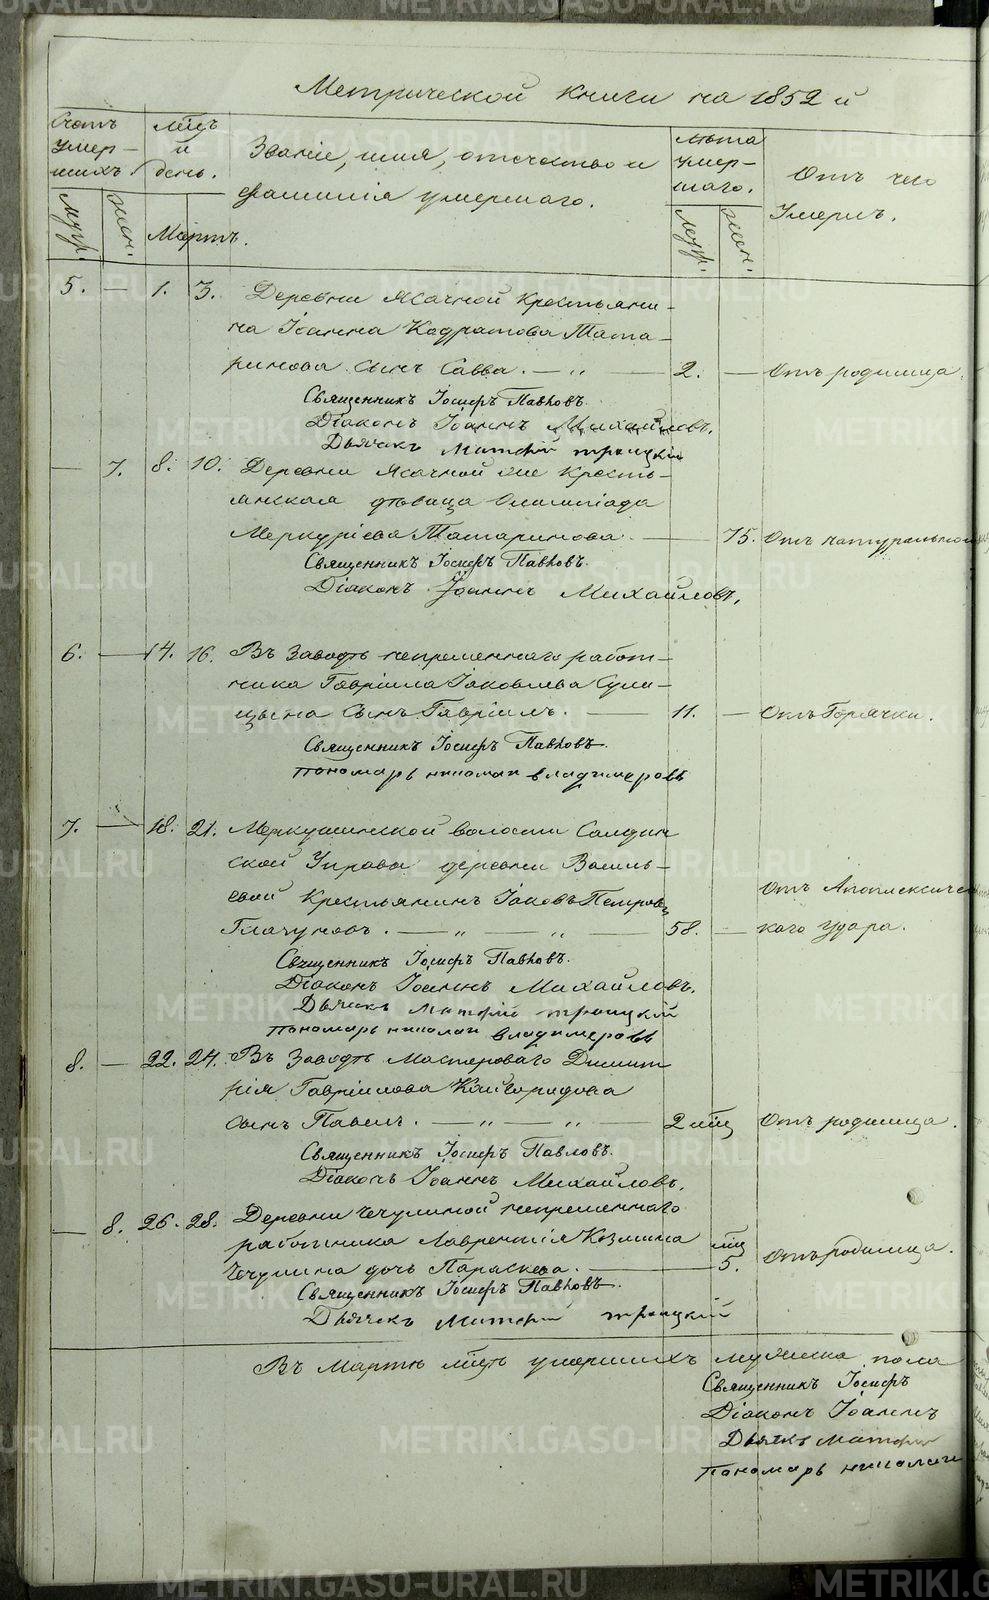 Метрической книги на 1852 й
Счетъ умершихъ. Мцъ и день. Званіе, имя, отечество и фамилія умершаго. Лѣта умершаго. Отъ чего умеръ.
муж. жен. Мартъ. муж. жен.
5. — 1. 3. Деревни Ясачной Крестьяни-
на Іоанна Кадратова Тата-
ринова сынъ Савва. — „ — 2. — Отъ родимца.
Священникъ Іосифъ Павловъ.
Діаконъ Іоаннъ Михайловъ.
Дьячекъ Матфій Троицкій
— 7. 8. 10. Деревни Ясачной же Кресть-
янская дѣвица Олимпіада
Меркуріева Татаринова. — 75. Отъ натуральной
Священникъ Іосифъ Павловъ.
Діаконъ Іоаннъ Михайловъ.
6. — 14. 16. Въ Заводѣ непременнаго работ-
ника Гавріила Іаковлева Сули-
цына сынъ Гавріилъ. — 11. — Отъ Горячки.
Священникъ Іосифъ Павловъ.
Пономарь Николай Владимеровъ
7. — 18. 21. Меркушинской волости Салдин
ской Управы деревни Василь-
евой Крестьянинъ Іаковъ Петровъ
Глазуновъ. — „ — „ — 58. — Отъ Апоплексичес
каго удара.
Священникъ Іосифъ Павловъ.
Діаконъ Іоаннъ Михайловъ.
Дьячекъ Матфій Троицкій
Пономарь Николай Владимеровъ
8. — 22. 24. Въ Заводѣ Мастероваго Димит
рія Гавріилова Кайгородова
сынъ Павелъ. — „ — „ — 2 мцъ Отъ родимца.
Священникъ Іосифъ Павловъ.
Діаконъ Іоаннъ Михайловъ.
— 8. 26. 28. Деревни Чечулиной непременнаго
работника Лаврентія Козмина мцъ
Чечулина дочь Параскева. — 5. Отъ родимца.
Священникъ Іосифъ Павловъ.
Дьячекъ Матфій Троицкій
Въ Мартѣ мцѣ умершихъ мужеска пола
Священникъ Іосифъ
Діаконъ Іоаннъ
Дьячекъ Матфій
Пономарь Николай
METRIKI.GASO-URAL.RU